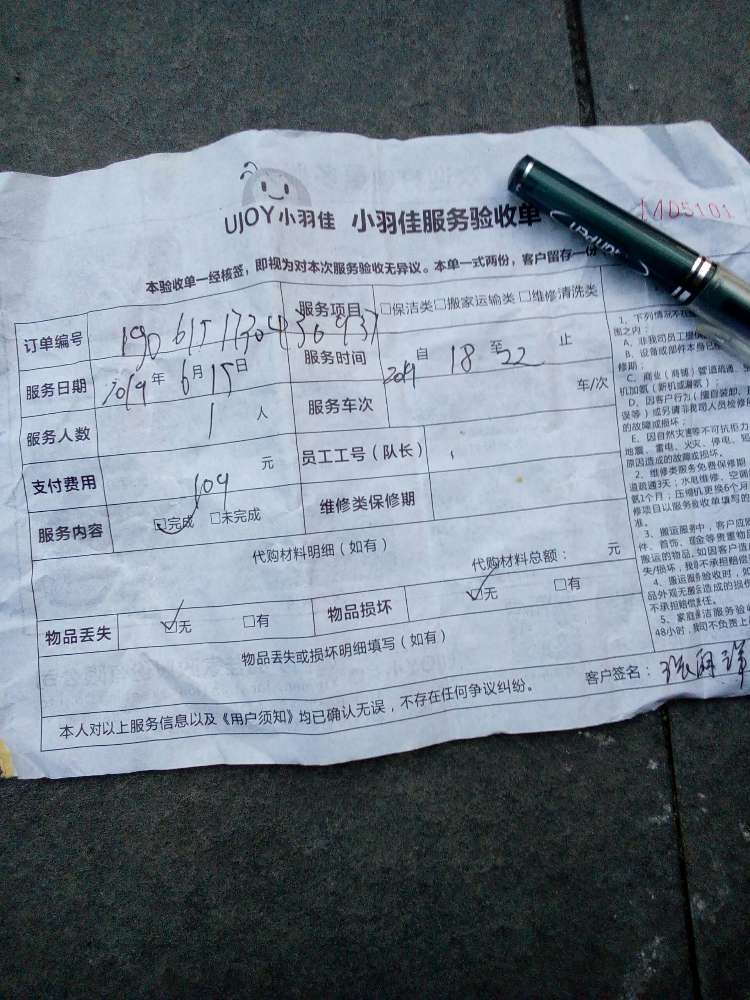 UJOY小羽佳 小羽佳服务验收单
1105101
本验收单一经核签，即视为对本次服务验收无异议。本单一式两份，客户留存一份
订单编号 190615173043 服务项目 □保洁类□搬家运输类□维修清洗类
服务日期 2019年6月15日 服务时间 2019 自 18 至 22 止
服务人数 1 人 服务车次 车/次
支付费用 109 元 员工工号（队长）
服务内容 ☑完成 □未完成 维修类保修期
代购材料明细（如有）
代购材料总额： 元
物品丢失 ☑无 □有 物品损坏 ☑无 □有
物品丢失或损坏明细填写（如有）
客户签名：
本人对以上服务信息以及《用户须知》均已确认无误，不存在任何争议纠纷。
1、下列情况不在
围之内：
A、非我司员工提供
B、设备或部件本身已
修期；
C、商业（商铺）管道疏通、
机加氨（新机或漏氨）；
D、因客户行为（擅自装卸、
误等）或另请非我司人员检修
的故障或损坏；
E、因自然灾害等不可抗拒力
地震、雷电、火灾、停电、
原因造成的故障或损坏。
2、维修类服务免费保修期
道疏通3天；水电维修、空调
氨1个月；压缩机更换6个月
修项目以服务验收单填写的
准。
3、搬运服务中，客户应
件、首饰、现金等贵重物品
搬运的物品，如因客户
失/损坏，我司不承担赔偿
4、搬运服务验收时，如
品外观无 造成的损
不承担赔偿责任。
5、家庭保洁服务验收
48小时，我司不负责上